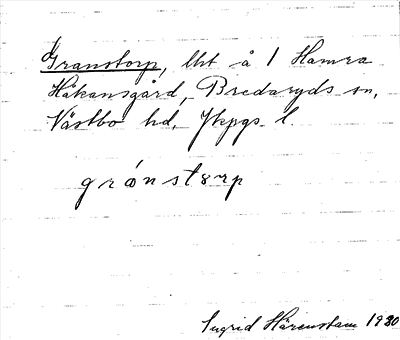 Granstorp, lht å 1 Hamra
Håkansgård, Bredaryds sn,
Västbo hd, Jkpgs l.
gránst8rp
Ingrid Härenstam 1930